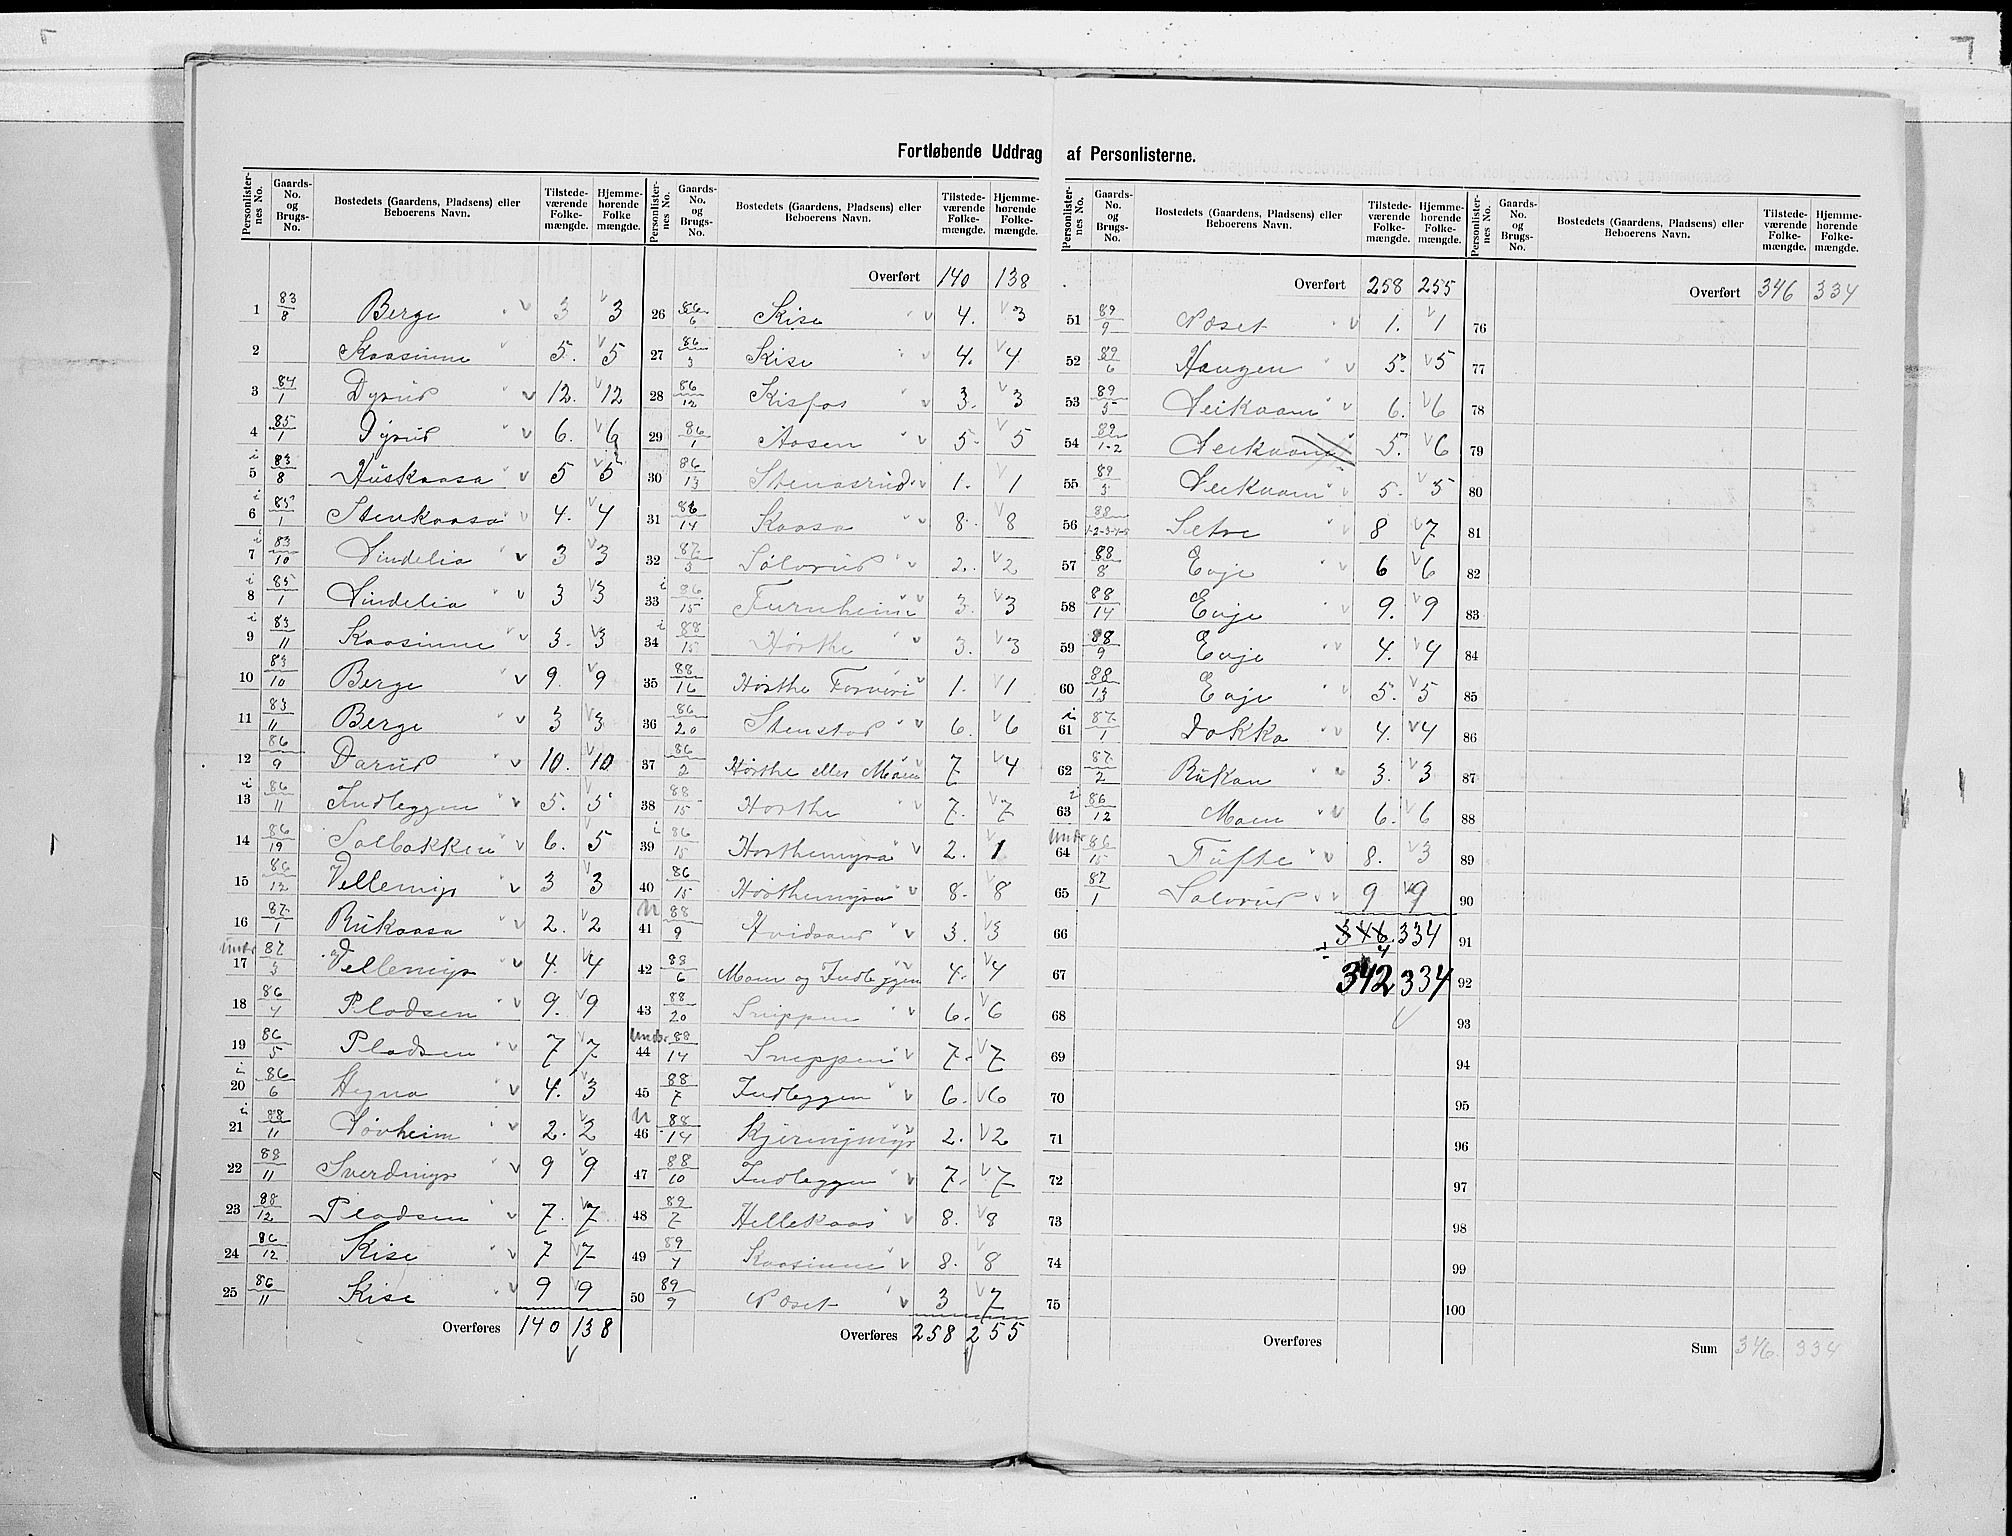 Fortløbende Uddrag af Personlisterne.
Personlisternes No. | Gaards-No. og Brugs-No. | Bostedets (Gaardens, Pladsens) eller Beboerens Navn. | Tilstedeværende Folkemængde. | Hjemmehørende Folkemængde.
1 83/8 Berge 3 3
2 Kaasinne 5. 5
3 84/1 Dyrud 12. 12
4 85/1 Dyrud 6. 6
i 5 83/8 Huskaasa 5 5
i 6 85/1 Stenkaasa 4. 4
i 7 83/10 Lindelia 3 3
i 8 85/1 Lindelia 3 3
i 9 83/11 Kaasinne 3. 3
10 83/10 Berge 9. 9
11 83/11 Berge 3 3
12 86/9 Darud 10. 10
i 13 86/11 Indleggen 5. 5
14 86/19 Solbakken 6. 5
15 86/12 Vellemyr 3 3
16 87/1 Rukaasa 2. 2
under 17 87/3 Vellemyr 4. 4
18 86/4 Pladsen 9. 9
19 86/5 Pladsen 7 7
i 20 86/6 Hegna 4. 3
i 21 88/11 Løvheim 2. 2
22 88/11 Sverdmyr 9 9
23 88/12 Pladsen 7. 7
24 86/12 Kise 7 7
25 86/11 Kise 9 9
Overføres 140 138
Overført 140 138
26 86/6 Kise 4. 3
27 86/3 Kise 4. 4
28 86/12 Kisfos 3. 3
29 86/1 Aasen 5. 5
30 86/13 Stenasrud 1. 1
31 86/14 Kaasa 8. 8
32 87/3 Solvrud 2. 2
i 33 86/15 Furuheim 3. 3
i 34 88/15 Horthe 3. 3
35 88/16 Horthe Farveri 1. 1
36 86/20 Stenstad 6. 6
37 86/2 Horthe eller Moen 7 4
38 88/15 Horthe 7. 7
i 39 86/15 Horthemyra 2. 1
40 86/15 Horthemyra 8. 8
U 41 88/9 Hvidsand 3. 3
42 88/6 Moen og Indleggen 4. 4
43 88/20 Snippen 6. 6
Under 44 88/14 Snippen 7. 7
45 88/7 Indleggen 6. 6
U 46 88/14 Kjerringmyr 2. 2
47 88/10 Indleggen 7. 7
48 89/7 Hellekaas 8. 8
49 89/4 Kaasinne 8. 8
50 89/9 Næset 3 7
Overføres 258 255
Overført 258 255
51 89/9 Næset 1. 1
52 89/6 Haugen 5. 5
53 89/5 Leikvam 6. 6
54 89/1-2 Leikvam 5. 6
55 89/3 Leikvam 5. 5
56 88/1-2-3-4-5 Setre 8 7
57 88/8 Evje 6 6
58 88/14 Evje 9. 9
59 88/9 Evje 4. 4
60 88/13 Evje 5. 5
i 61 87/1 Dokka 4. 4
62 87/2 Rukan 3. 3
i 63 86/12 Moen 6. 6
Under 64 86/15 Tufte 8. 3
65 87/1 Solvrud 9 9
66 346. 334
÷ 4
67 342 334
68
69
70
71
72
73
74
75
Overføres
Overført 346 334
76
77
78
79
80
81
82
83
84
85
86
87
88
89
90
91
92
93
94
95
96
97
98
99
100
Sum 346. 334